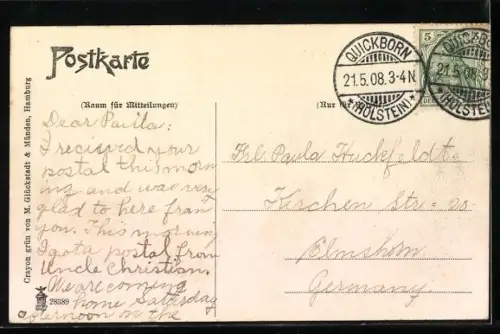 Postkarte
(Raum für Mitteilungen)
(Nur für
QUICKBORN
21.5.08.3-4N
*(HOLSTEIN)*
5
QUICKBORN
21.5.08.3-4N
(HOLSTEIN)
Dear Paula:
I recieved your
postal this mor
ning and was very
glad to here fran
you. This morning
I got a postal from
Uncle Christian.
We are coming
home Saturday
afternoon on the
Frl. Paula Huckfeldt
Kirchen Str. 20
Elmshorn
Germany.
Crayon grün von M. Glückstadt & Münden, Hamburg
28389